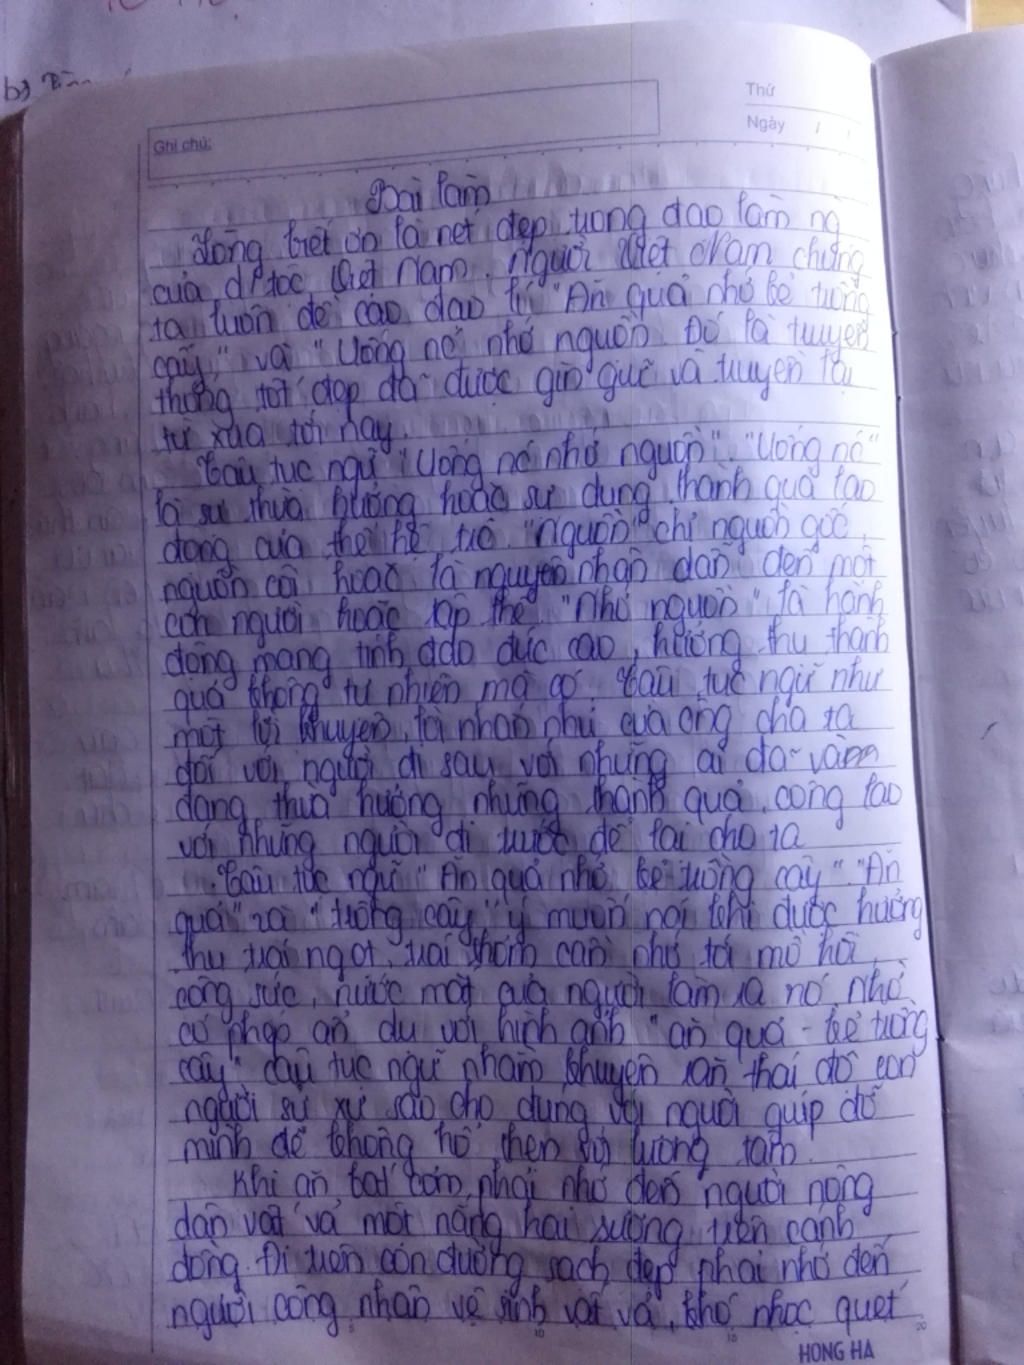 b)
Thứ
Ngày / /
Ghi chú:
Bài làm
Lòng biết ơn là nét đẹp trong đạo làm ng
của dtộc Việt Nam. Người Việt Nam chúng
ta luôn đề cao đạo lí "Ăn quả nhớ kẻ trồng
cây" và "Uống nc nhớ nguồn. Đó là truyền
thống tốt đẹp đã được gìn giữ và truyền lại
từ xưa tới nay.
Câu tục ngữ "Uống nc nhớ nguồn". "Uống nc"
là sự thừa hưởng hoặc sử dụng thành quả lao
động của thế hệ trc. "Nguồn" chỉ nguồn gốc,
nguồn cội hoặc là nguyên nhân dẫn đến một
con người hoặc tập thể. "Nhớ nguồn" là hành
động mang tính đạo đức cao, hưởng thụ thành
quả không tự nhiên mà có. Câu tục ngữ như
một lời khuyên, lời nhắn nhủ của ông cha ta
đối với người đi sau, với những ai đã và
đang thừa hưởng những thành quả, công lao
với những người đi trước để lại cho ta
Câu tục ngữ "Ăn quả nhớ kẻ trồng cây". "Ăn
quả" và "trồng cây" ý muốn nói khi được hưởng
thụ trái ngọt, trái thơm cần nhớ tới mồ hôi,
công sức, nước mắt của người làm ra nó. Nhờ
có phép ẩn dụ với hình ảnh "ăn quả - kẻ trồng
cây" câu tục ngữ nhằm khuyên răn thái độ con
người sư xử sao cho đúng với người giúp đỡ
mình để không hổ thẹn với lương tâm.
Khi ăn bát cơm, phải nhớ đến người nông
dân vất vả một nắng hai sương trên cánh
đồng. Đi trên con đường sạch đẹp phải nhớ đến
người công nhân vệ sinh vất vả, khó nhọc quét
5 10 15 20
HONG HA